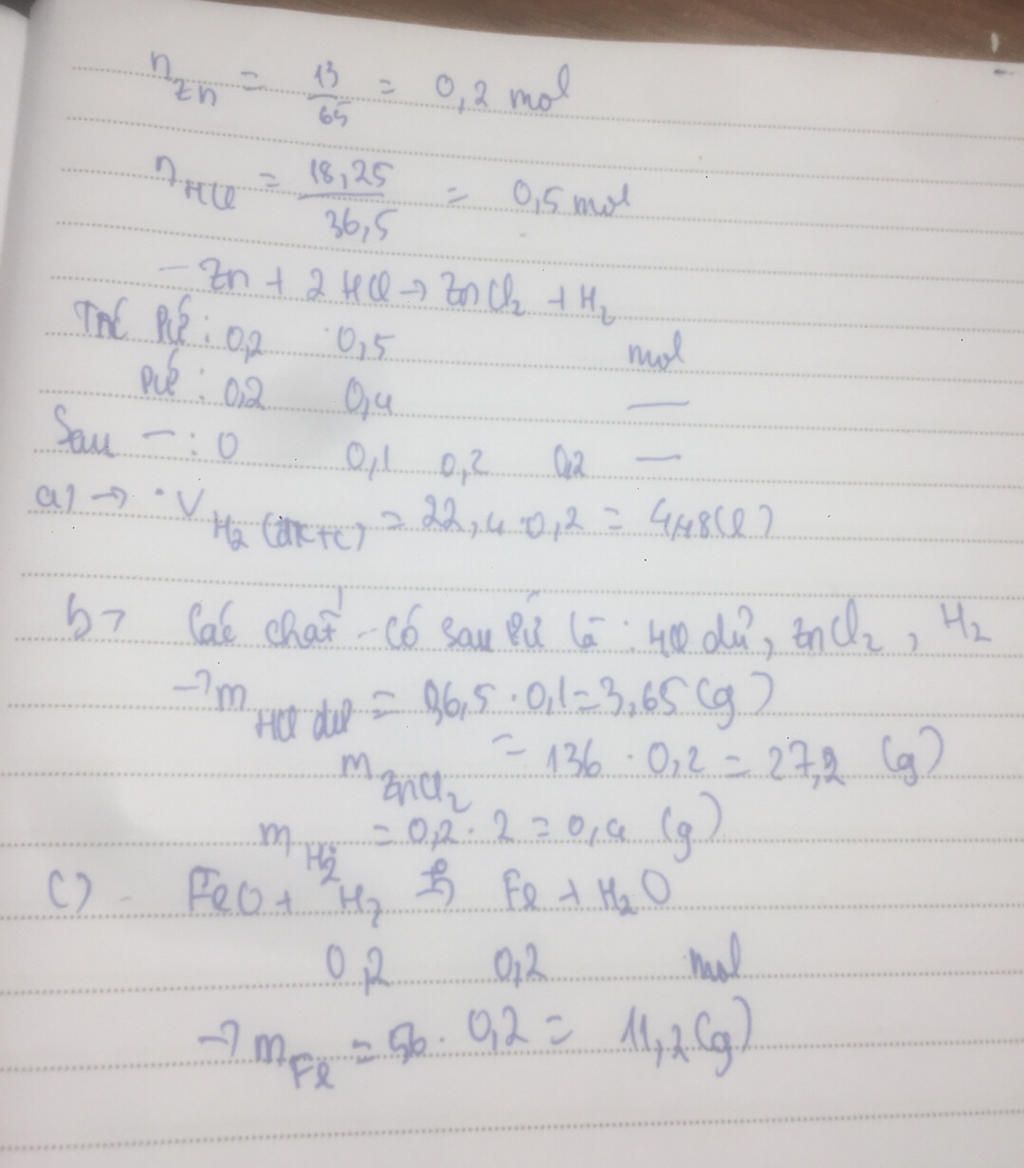 n Zn = 13/65 = 0,2 mol
n HCl = 18,25/36,5 = 0,5 mol
- Zn + 2 HCl → ZnCl₂ + H₂
Trc PƯ : 0,2 0,5 mol
PƯ : 0,2 0,4 —
Sau — : 0 0,1 0,2 0,2 —
a) → · V H₂ (đktc) = 22,4 · 0,2 = 4,48 (l)
b> Các chất có sau PƯ là : HCl dư, ZnCl₂, H₂
→ m HCl dư = 36,5 · 0,1 = 3,65 (g)
m ZnCl₂ = 136 · 0,2 = 27,2 (g)
m H₂ = 0,2 · 2 = 0,4 (g)
c) - FeO + H₂ → Fe + H₂O
0,2 0,2 mol
→ m Fe = 56 · 0,2 = 11,2 (g)